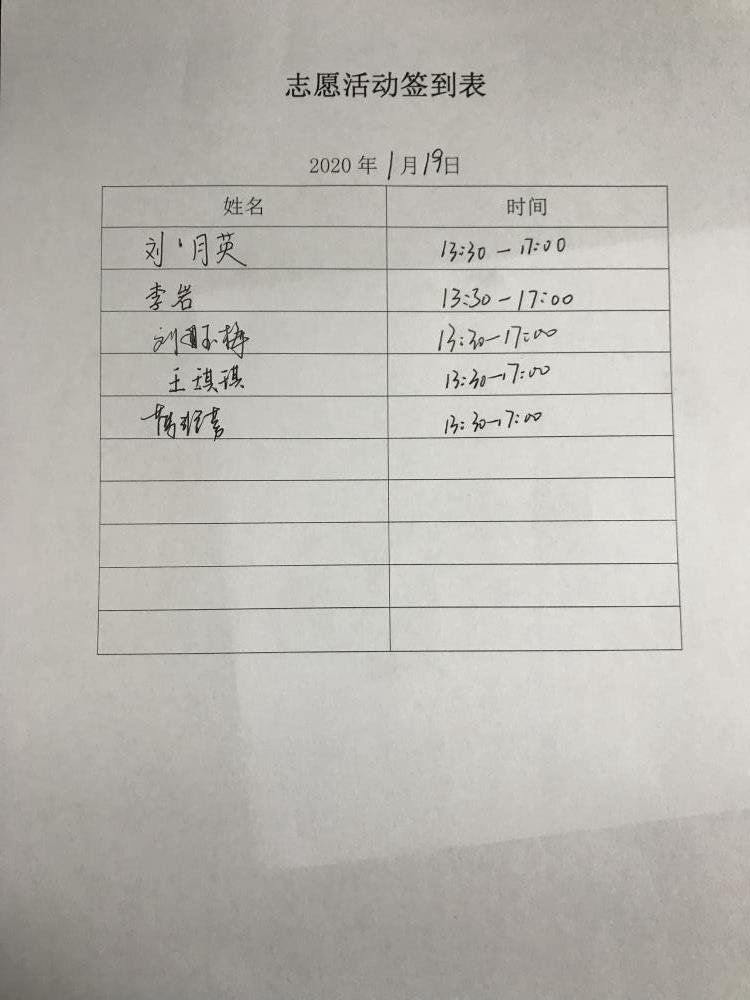 志愿活动签到表
2020 年 1 月 19 日
姓名 时间
刘月英 13:30-17:00
李岩 13:30-17:00
刘玉梅 13:30-17:00
王琪琪 13:30-17:00
13:30-17:00